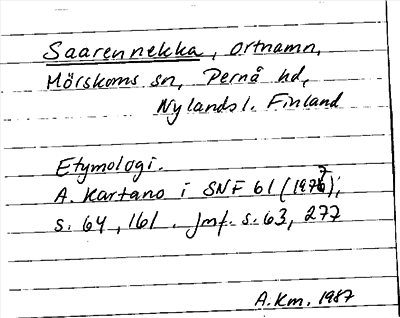 Saarennekka, ortnamn,
Mörskoms sn, Pernå hd,
Nylands l. Finland
Etymologi.
A. Kartano i SNF 61 (1977);
s. 64, 161. Jmf. s. 63, 277
A.Km. 1987